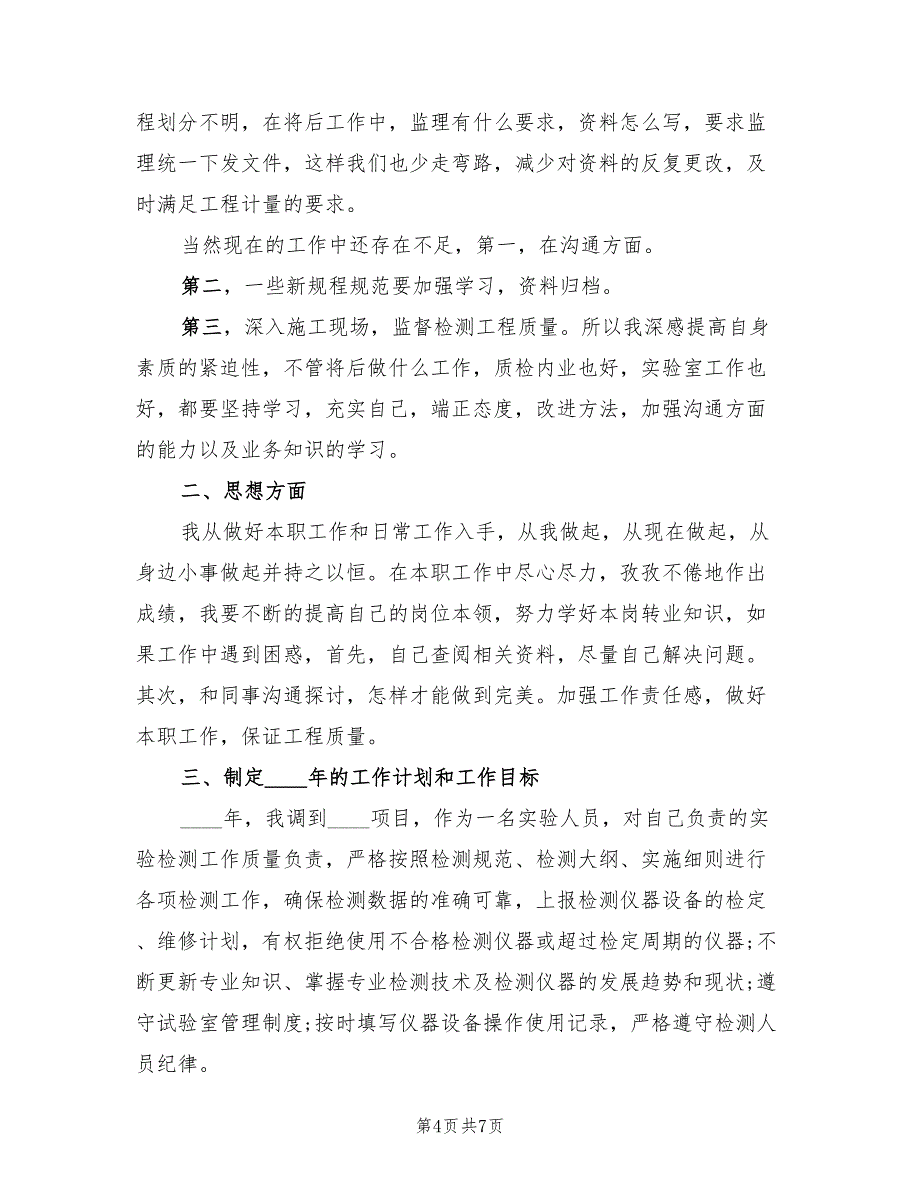 程划分不明，在将后工作中，监理有什么要求，资料怎么写，要求监
理统一下发文件，这样我们也少走弯路，减少对资料的反复更改，及
时满足工程计量的要求。
当然现在的工作中还存在不足，第一，在沟通方面。
第二，一些新规程规范要加强学习，资料归档。
第三，深入施工现场，监督检测工程质量。所以我深感提高自身
素质的紧迫性，不管将后做什么工作，质检内业也好，实验室工作也
好，都要坚持学习，充实自己，端正态度，改进方法，加强沟通方面
的能力以及业务知识的学习。
二、思想方面
我从做好本职工作和日常工作入手，从我做起，从现在做起，从
身边小事做起并持之以恒。在本职工作中尽心尽力，孜孜不倦地作出
成绩，我要不断的提高自己的岗位本领，努力学好本岗转业知识，如
果工作中遇到困惑，首先，自己查阅相关资料，尽量自己解决问题。
其次，和同事沟通探讨，怎样才能做到完美。加强工作责任感，做好
本职工作，保证工程质量。
三、制定____年的工作计划和工作目标
____年，我调到____项目，作为一名实验人员，对自己负责的实
验检测工作质量负责，严格按照检测规范、检测大纲、实施细则进行
各项检测工作，确保检测数据的准确可靠，上报检测仪器设备的检定
、维修计划，有权拒绝使用不合格检测仪器或超过检定周期的仪器;不
断更新专业知识、掌握专业检测技术及检测仪器的发展趋势和现状;遵
守试验室管理制度;按时填写仪器设备操作使用记录，严格遵守检测人
员纪律。
第4页共7页